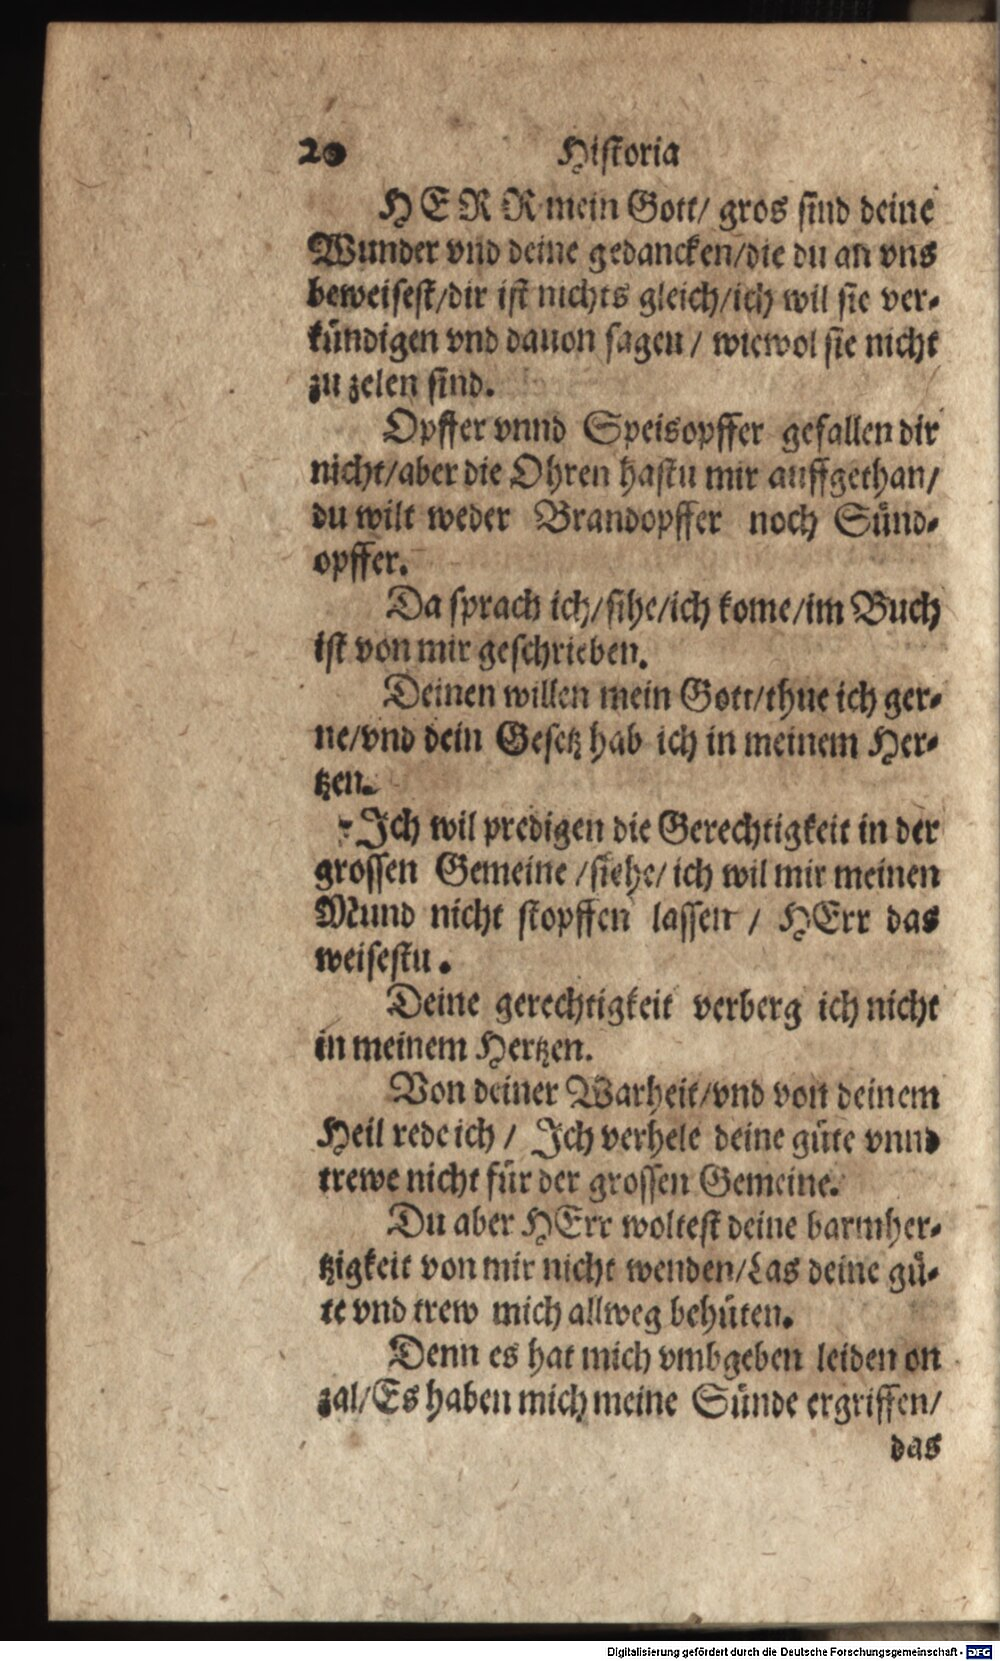 20 Historia
HERR mein Gott/ gros sind deine
Wunder vnd deine gedancken/die du an vns
beweisest/dir ist nichts gleich/ich wil sie ver-
kündigen vnd dauon sagen/ wiewol sie nicht
zu zelen sind.
Opffer vnnd Speisopffer gefallen dir
nicht/aber die Ohren hastu mir auffgethan/
du wilt weder Brandopffer noch Sünd-
opffer.
Da sprach ich/sihe/ich kome/im Buch
ist von mir geschrieben.
Deinen willen mein Gott/thue ich ger-
ne/vnd dein Gesetz hab ich in meinem Her-
tzen.
Ich wil predigen die Gerechtigkeit in der
grossen Gemeine /siehe/ ich wil mir meinen
Mund nicht stopffen lassen / HErr das
weisestu.
Deine gerechtigkeit verberg ich nicht
in meinem Hertzen.
Von deiner Warheit/vnd von deinem
Heil rede ich / Ich verhele deine güte vnnd
trewe nicht für der grossen Gemeine.
Du aber HErr woltest deine barmher-
tzigkeit von mir nicht wenden/Las deine gü-
te vnd trew mich allweg behüten.
Denn es hat mich vmbgeben leiden on
zal/Es haben mich meine Sünde ergriffen/
das
Digitalisierung gefördert durch die Deutsche Forschungsgemeinschaft - DFG